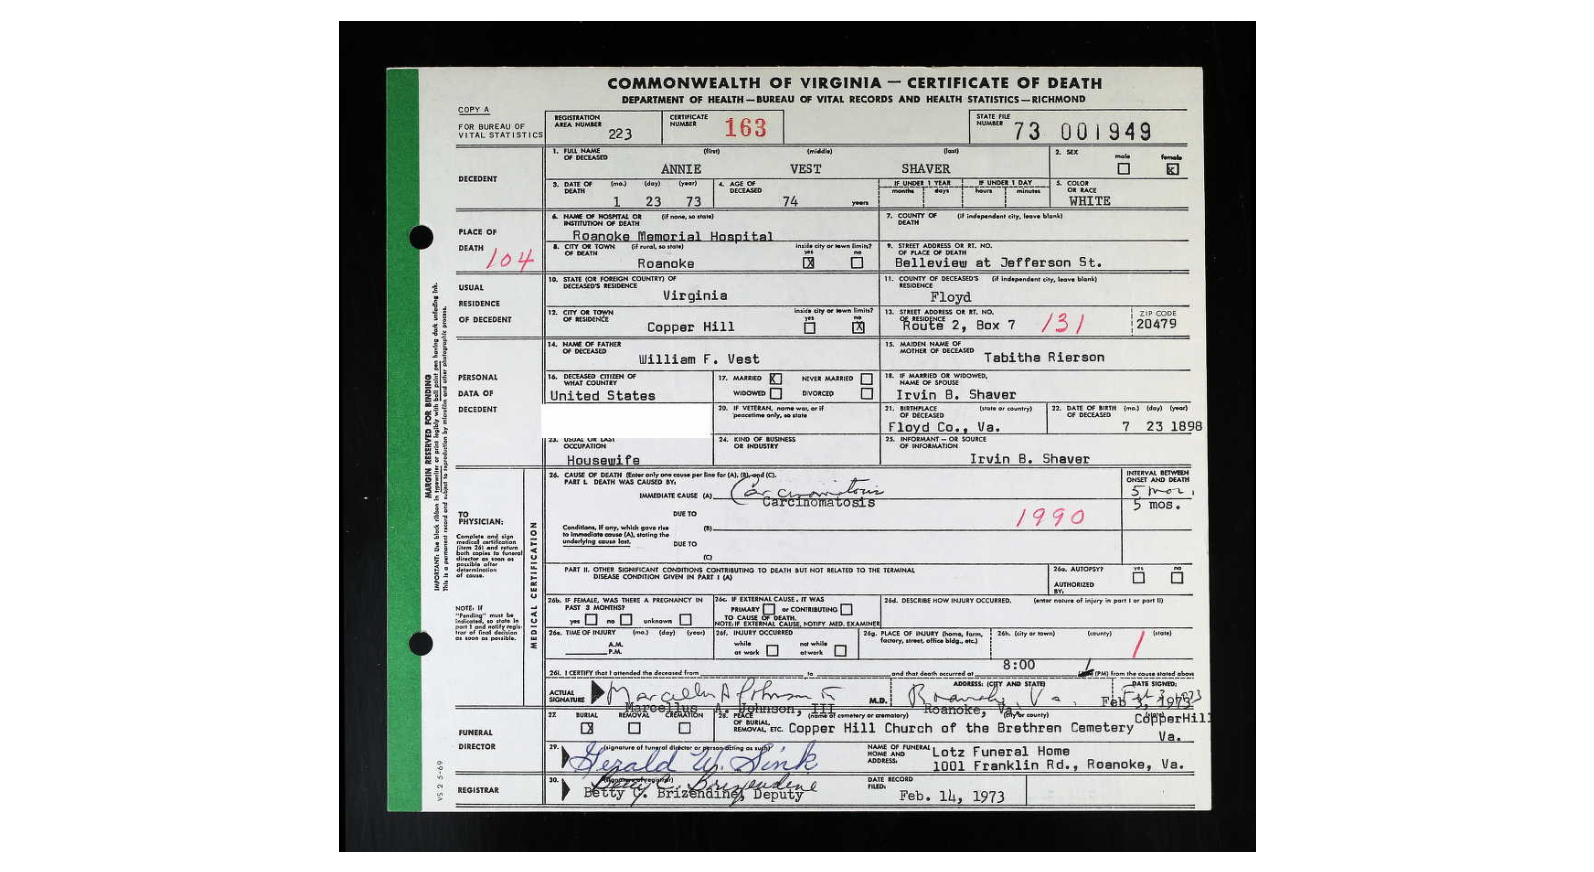 COMMONWEALTH OF VIRGINIA — CERTIFICATE OF DEATH
DEPARTMENT OF HEALTH—BUREAU OF VITAL RECORDS AND HEALTH STATISTICS—RICHMOND
COPY A
FOR BUREAU OF VITAL STATISTICS
REGISTRATION AREA NUMBER 223
CERTIFICATE NUMBER 163
STATE FILE NUMBER 73 001949
DECEDENT
1. FULL NAME OF DECEASED (first) (middle) (last)
ANNIE VEST SHAVER
2. SEX male female X
3. DATE OF DEATH (mo.) (day) (year)
1 23 73
4. AGE OF DECEASED 74 years
IF UNDER 1 YEAR months days
IF UNDER 1 DAY hours minutes
5. COLOR OR RACE WHITE
PLACE OF DEATH 104
6. NAME OF HOSPITAL OR INSTITUTION OF DEATH (if none, so state)
Roanoke Memorial Hospital
7. COUNTY OF DEATH (if independent city, leave blank)
8. CITY OR TOWN OF DEATH (if rural, so state) inside city or town limits? yes X no
Roanoke
9. STREET ADDRESS OR RT. NO. OF PLACE OF DEATH
Belleview at Jefferson St.
USUAL RESIDENCE OF DECEDENT
10. STATE (OR FOREIGN COUNTRY) OF DECEASED'S RESIDENCE
Virginia
11. COUNTY OF DECEASED'S RESIDENCE (if independent city, leave blank)
Floyd
12. CITY OR TOWN OF RESIDENCE inside city or town limits? yes no X
Copper Hill
13. STREET ADDRESS OR RT. NO. OF RESIDENCE
Route 2, Box 7 131
ZIP CODE 20479
PERSONAL DATA OF DECEDENT
14. NAME OF FATHER OF DECEASED
William F. Vest
15. MAIDEN NAME OF MOTHER OF DECEASED
Tabitha Rierson
16. DECEASED CITIZEN OF WHAT COUNTRY
United States
17. MARRIED X NEVER MARRIED
WIDOWED DIVORCED
18. IF MARRIED OR WIDOWED, NAME OF SPOUSE
Irvin B. Shaver
20. IF VETERAN, name war, or if peacetime only, so state
21. BIRTHPLACE OF DECEASED (state or country)
Floyd Co., Va.
22. DATE OF BIRTH OF DECEASED (mo.) (day) (year)
7 23 1898
23. USUAL OR LAST OCCUPATION
Housewife
24. KIND OF BUSINESS OR INDUSTRY
25. INFORMANT — OR SOURCE OF INFORMATION
Irvin B. Shaver
MARGIN RESERVED FOR BINDING
TO PHYSICIAN:
Complete and sign medical certification (item 26) and return both copies to funeral director as soon as possible after determination of cause.
NOTE: If "Pending" must be indicated, so state in part 1 and notify registrar of final decision as soon as possible.
MEDICAL CERTIFICATION
26. CAUSE OF DEATH (Enter only one cause per line for (A), (B), and (C).
PART I. DEATH WAS CAUSED BY:
INTERVAL BETWEEN ONSET AND DEATH
IMMEDIATE CAUSE (A) Carcinomatosis 5 mos.
Carcinomatosis 5 mos.
DUE TO
1990
Conditions, if any, which gave rise to immediate cause (A), stating the underlying cause last.
(B)
DUE TO
(C)
PART II. OTHER SIGNIFICANT CONDITIONS CONTRIBUTING TO DEATH BUT NOT RELATED TO THE TERMINAL DISEASE CONDITION GIVEN IN PART I (A)
26a. AUTOPSY? yes no
AUTHORIZED BY:
26b. IF FEMALE, WAS THERE A PREGNANCY IN PAST 3 MONTHS?
yes no unknown
26c. IF EXTERNAL CAUSE, IT WAS
PRIMARY or CONTRIBUTING
TO CAUSE OF DEATH.
NOTE: IF EXTERNAL CAUSE, NOTIFY MED. EXAMINER
26d. DESCRIBE HOW INJURY OCCURRED. (enter nature of injury in part I or part II)
26e. TIME OF INJURY (mo.) (day) (year)
A.M.
P.M.
26f. INJURY OCCURRED
while at work not while at work
26g. PLACE OF INJURY (home, farm, factory, street, office bldg., etc.)
26h. (city or town) (county) (state)
1
26i. I CERTIFY that I attended the deceased from to and that death occurred at 8:00 (PM) from the cause stated above
ACTUAL SIGNATURE Marcellus A Johnson III M.D.
Marcellus A. Johnson, III
ADDRESS: (CITY AND STATE)
Roanoke, Va.
Roanoke, Va.
DATE SIGNED:
Feb 3, 1973
Feb 3, 1973
FUNERAL DIRECTOR
27. BURIAL X REMOVAL CREMATION
28. PLACE OF BURIAL, REMOVAL, ETC. (name of cemetery or crematory) (city or county) (state)
Copper Hill Church of the Brethren Cemetery CopperHill Va.
29. (signature of funeral director or person acting as such)
Gerald W. Sink
NAME OF FUNERAL HOME AND ADDRESS:
Lotz Funeral Home
1001 Franklin Rd., Roanoke, Va.
REGISTRAR
30. (signature of registrar)
Betty C. Brizendine
Betty C. Brizendine, Deputy
DATE RECORD FILED:
Feb. 14, 1973
VS 2 5-69